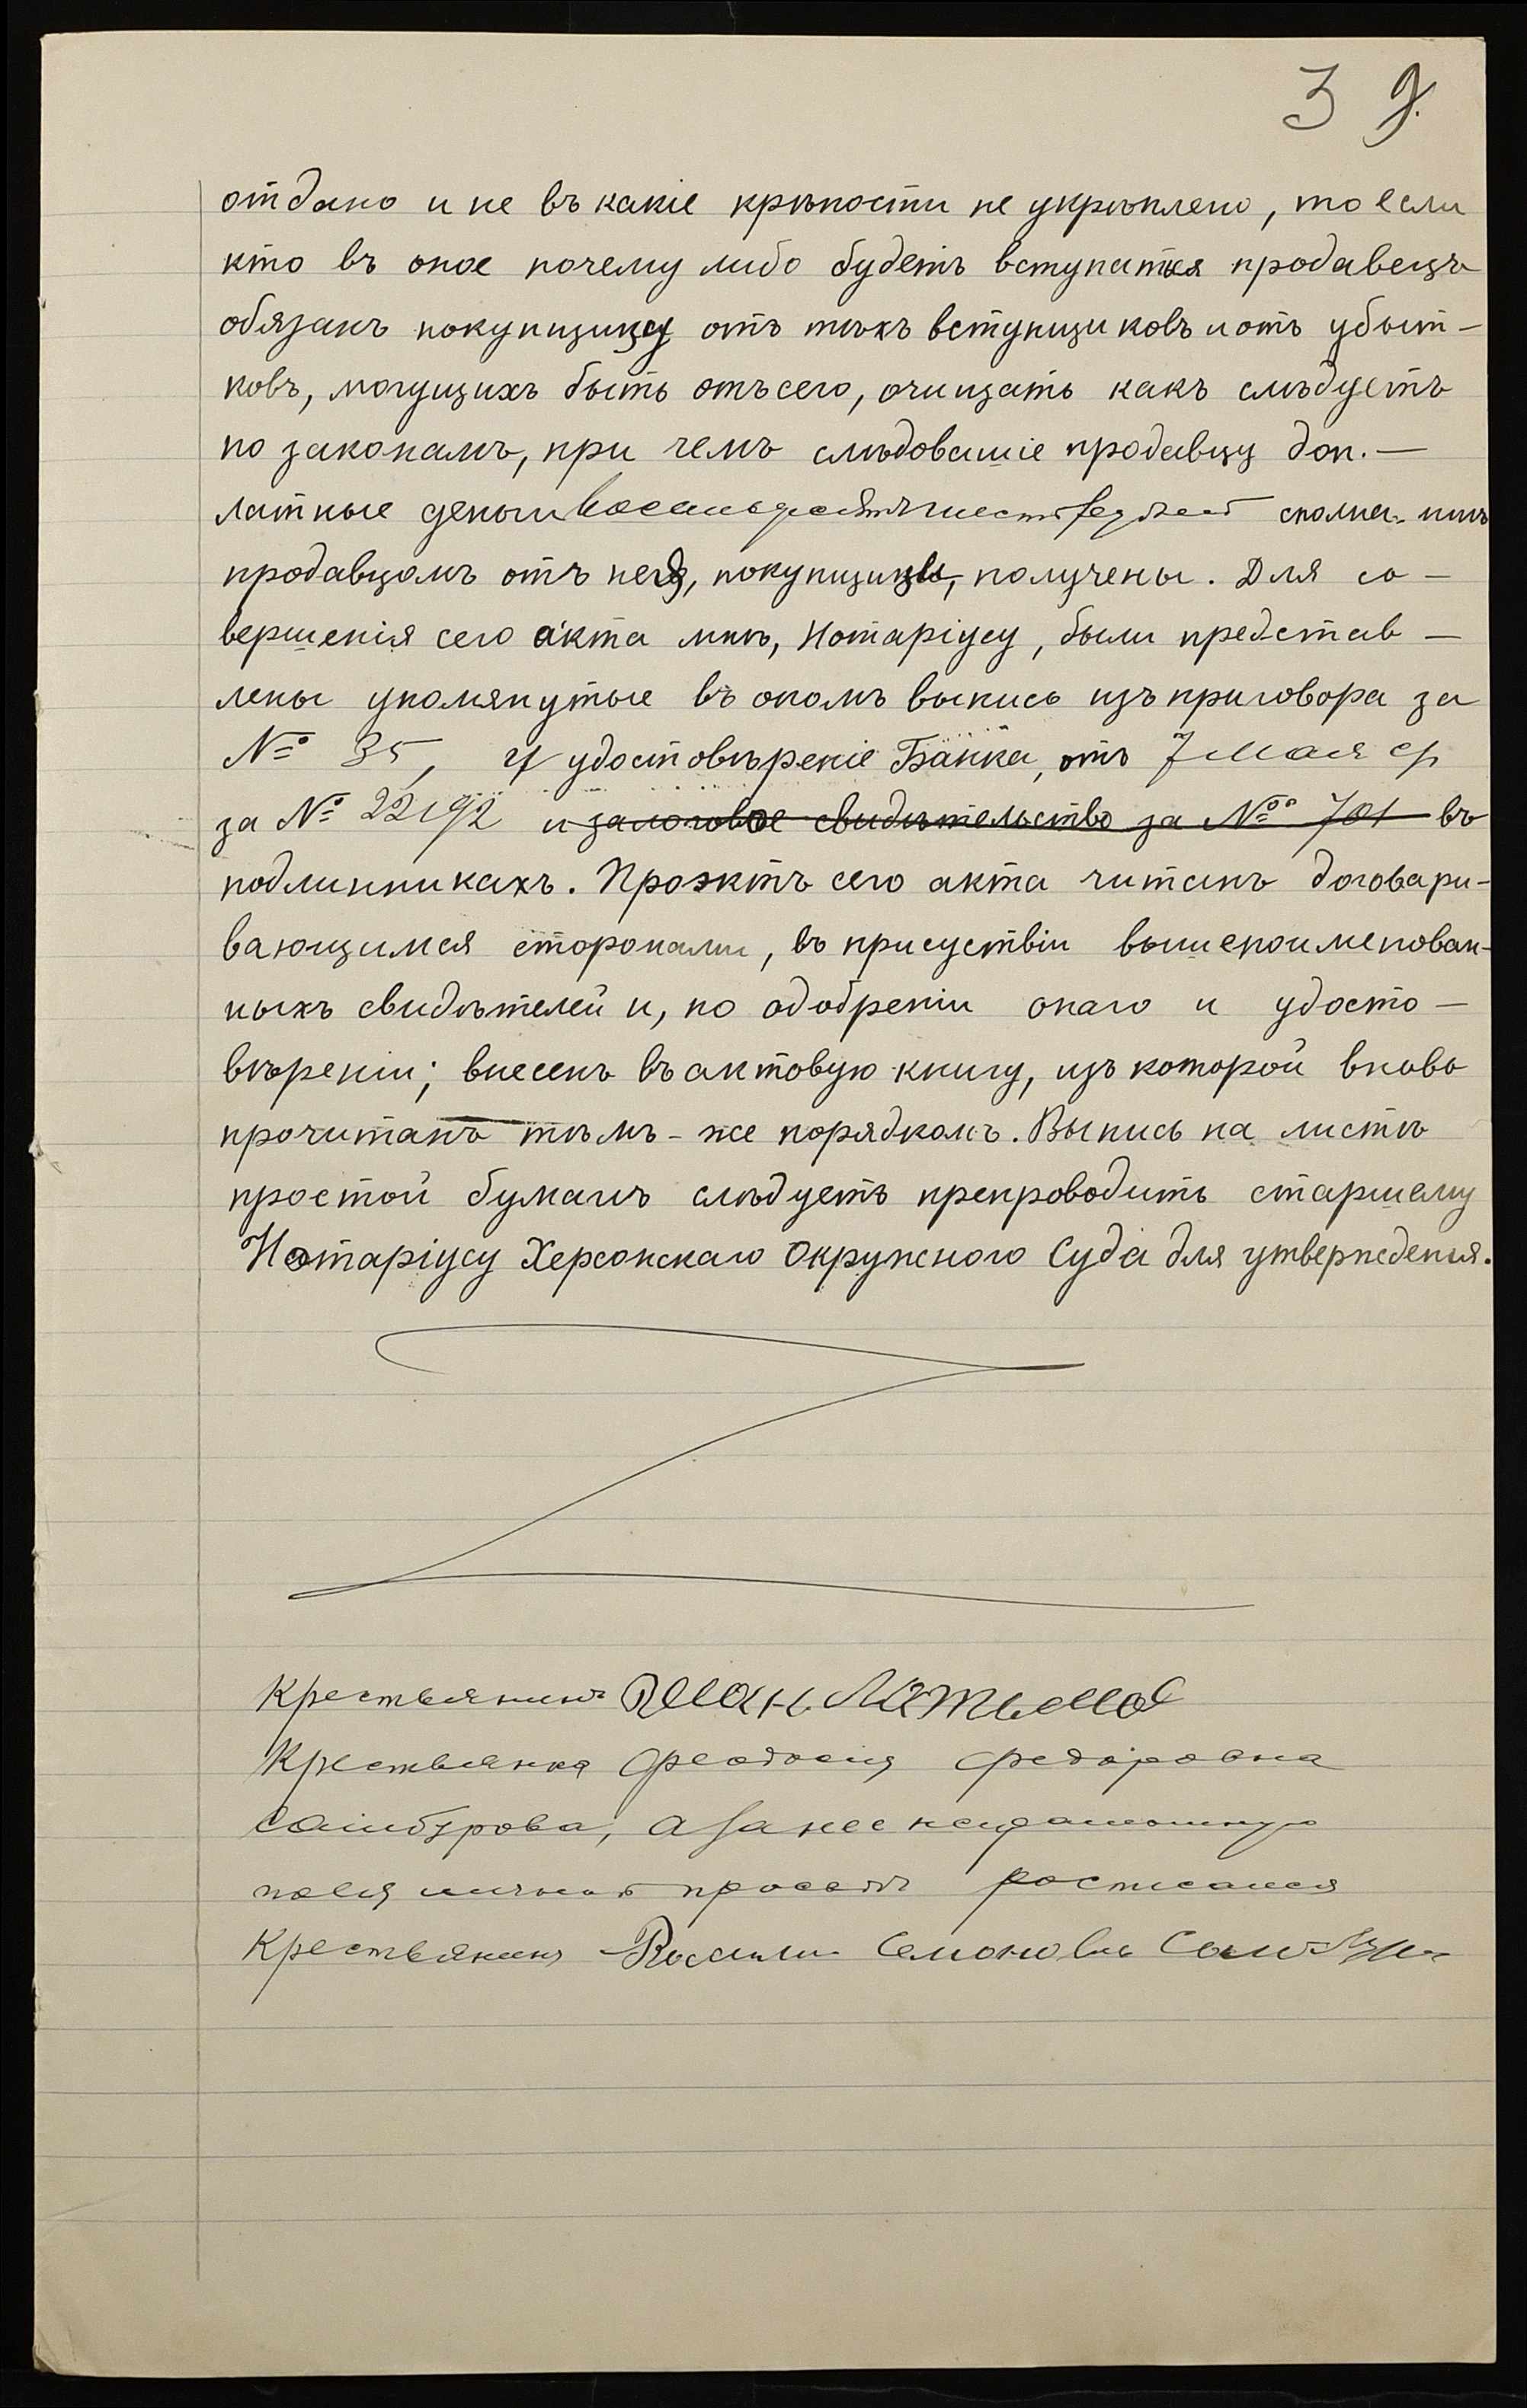 3 9.
отдано и не въ какіе крѣпости не укрѣплено, то если
кто въ оное почему либо будетъ вступатся продавецъ
обязанъ покупщицу отъ тѣхъ вступщиковъ и отъ убыт-
ковъ, могущихъ быть отъ сего, очищать какъ слѣдуетъ
по законамъ, при чемъ слѣдовавшіе продавцу доп.-
латные деньги восемьдесятъ шесть рублей сполна имъ
продавцомъ отъ нея, покупщицы, получены. Для со-
вершенія сего акта мнѣ, Нотаріусу, были представ-
лены упомянутые въ ономъ выпись изъ приговора за
№ 35, и удостовѣреніе Банка, отъ 7 мая с/г
за № 22192 и залоговое свидѣтельство за № 701 въ
подлинникахъ. Проэктъ сего акта читанъ договари-
вающимся сторонами, въ присуствіи вышепоименован-
ныхъ свидѣтелей и, по одобреніи онаго и удосто-
вѣреніи; внесенъ въ актовую книгу, изъ которой вновь
прочитанъ тѣмъ-же порядкомъ. Выпись на листѣ
простой бумагѣ слѣдуетъ препроводить старшему
Нотаріусу Херсонскаго Окружного Суда для утвержденія.
Крестьянинъ
Крестьянка Феодосія Федоровна
а за нее неграмотную
по ея личной просьбѣ росписался
Крестьянинъ Семоновъ